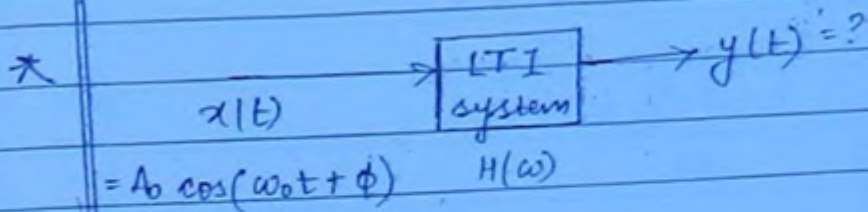 *
x(t)
LTI
system
→ y(t) = ?
= A₀ cos(ω₀t + ϕ)
H(ω)